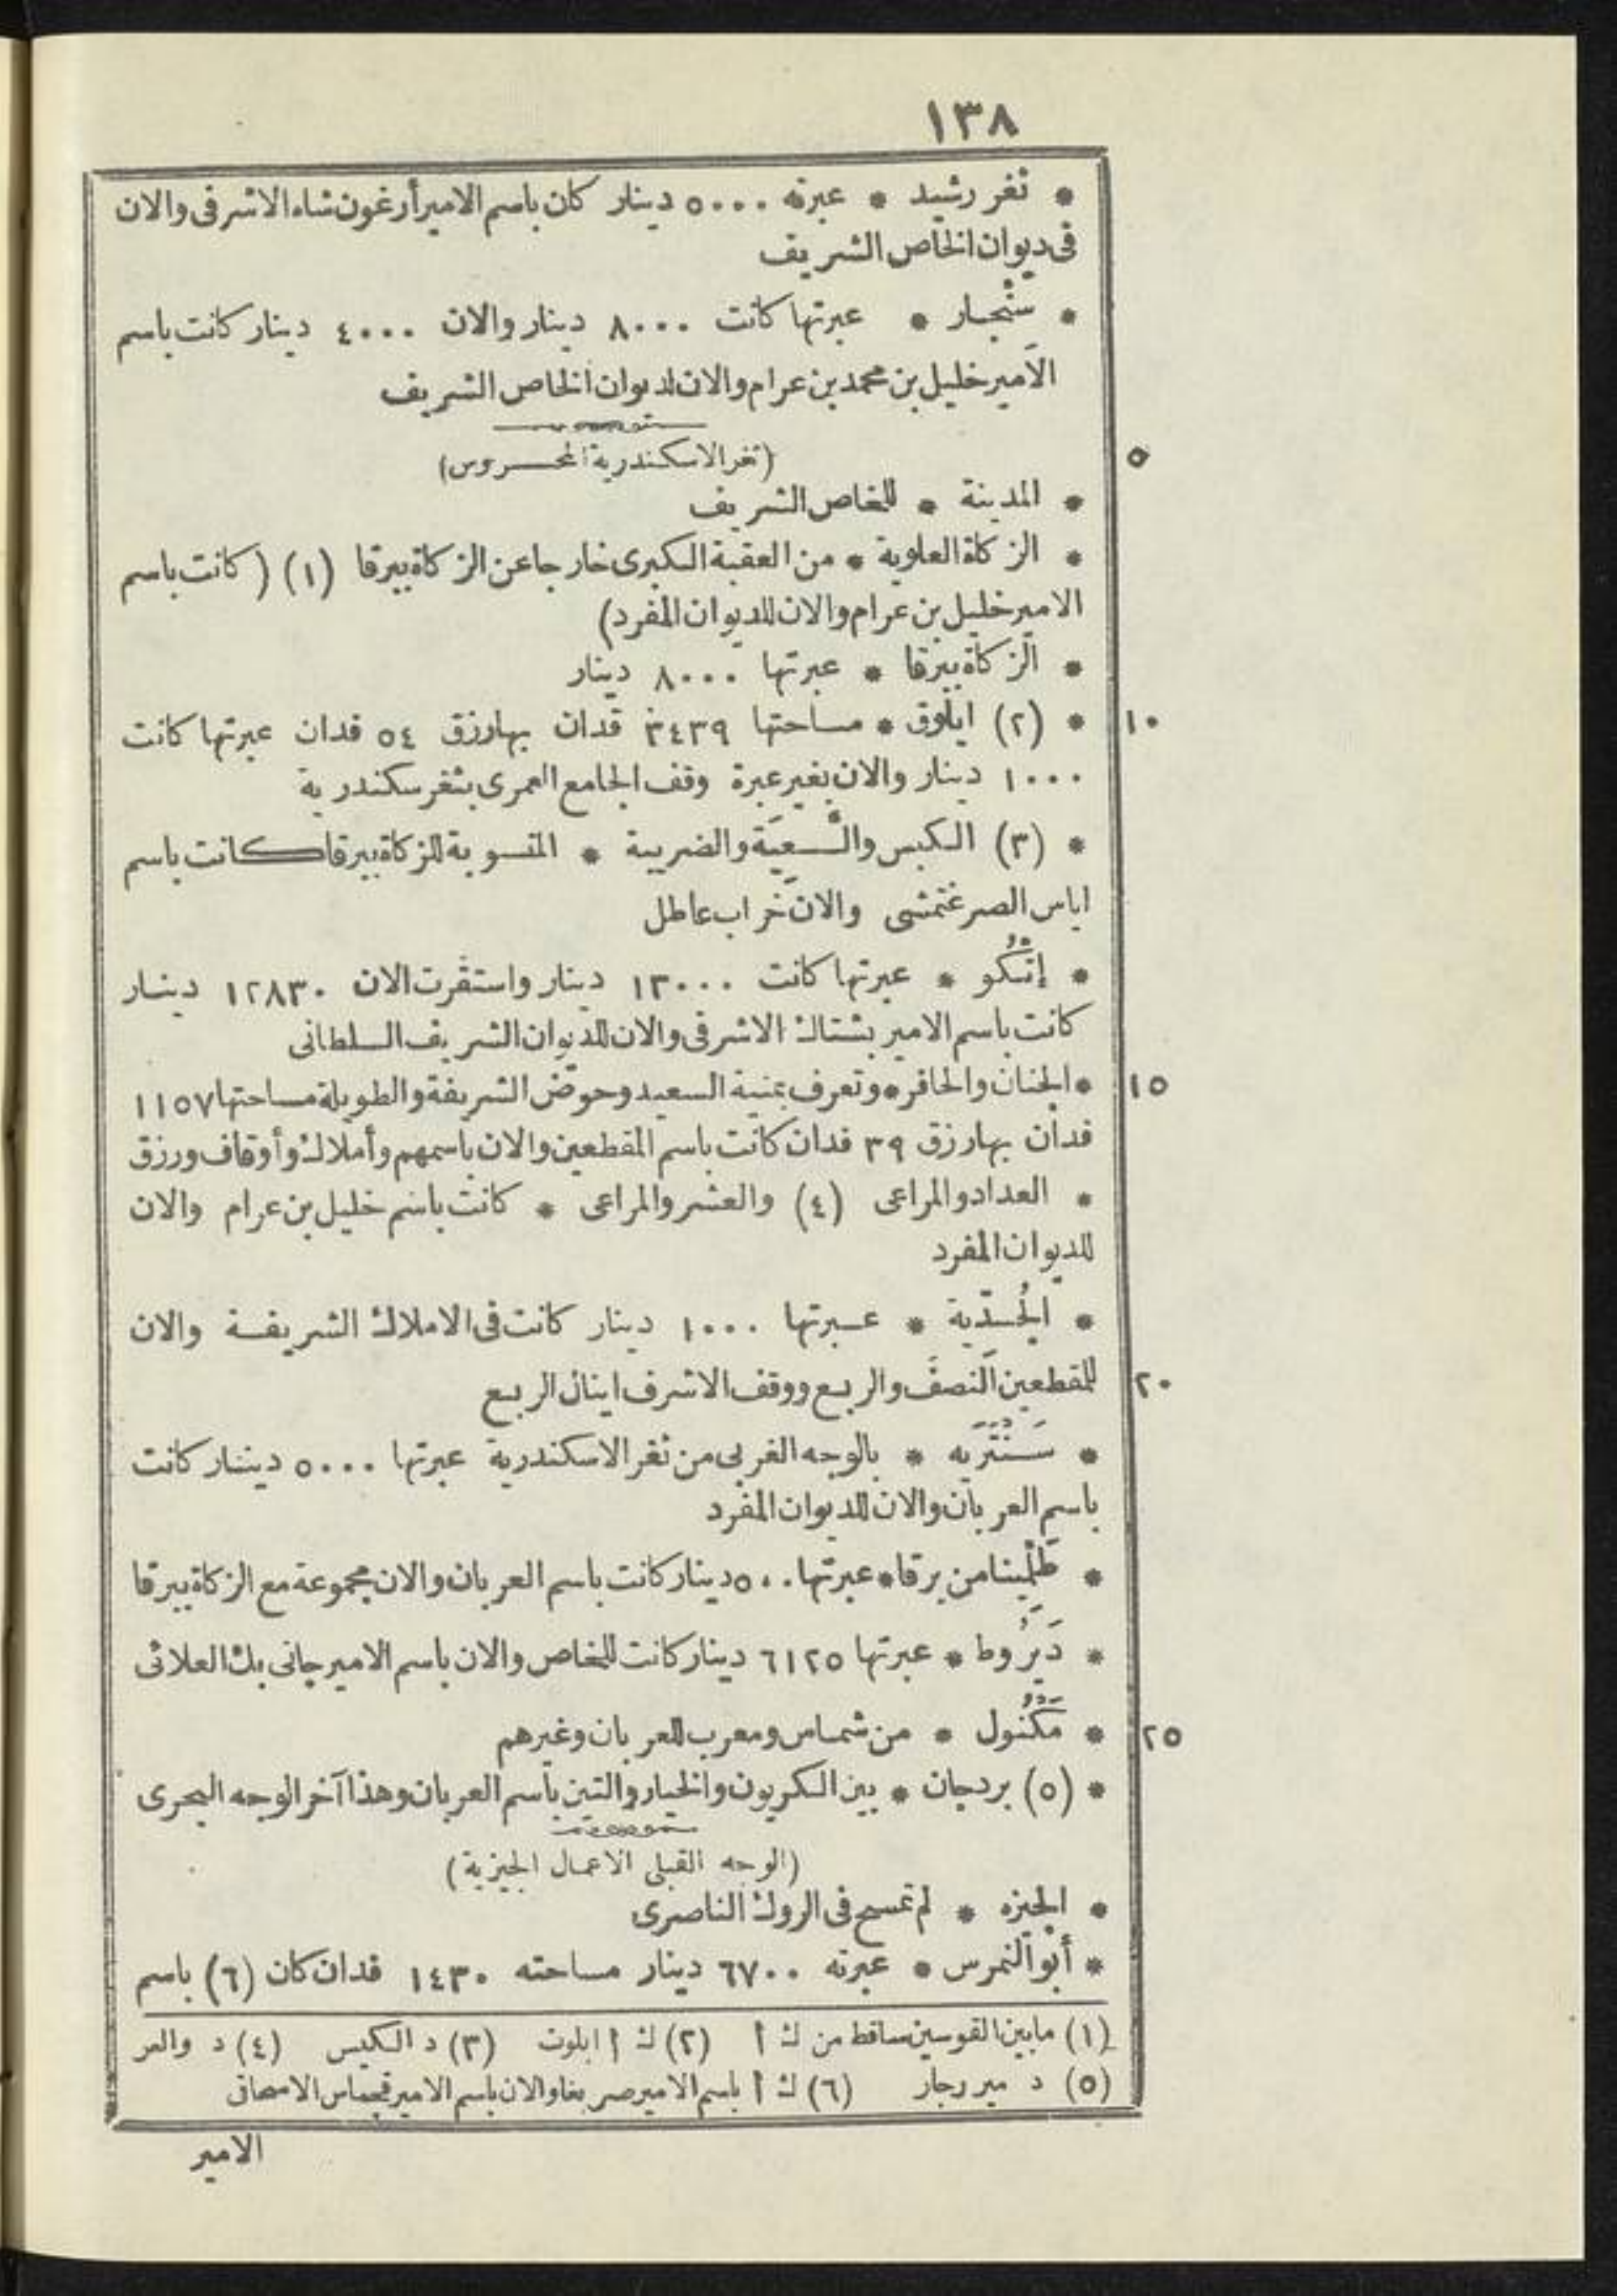 ١٣٨
* ثغر رشيد * عبرته ٥٠٠٠ دينار كان باسم الامير أرغون شاه الاشرفى والان
فى ديوان الخاص الشريف
* سَنْجار * عبرتها كانت ٨٠٠٠ دينار والان ٤٠٠٠ دينار كانت باسم
الامير خليل بن محمد بن عرام والان لديوان الخاص الشريف
٥
(ثغر الاسكندرية المحروس)
* المدينة * للخاص الشريف
* الزكاة العلوية * من العقبة الكبرى خارجا عن الزكاة ببرقا (١) (كانت باسم
الامير خليل بن عرام والان للديوان المفرد)
* الزكاة ببرقا * عبرتها ٨٠٠٠ دينار
١٠
* (٢) ايلوق * مساحتها ٣٤٣٩ فدان بها رزق ٥٤ فدان عبرتها كانت
١٠٠٠ دينار والان بغير عبرة وقف الجامع العمرى بثغر سكندرية
* (٣) الكبس والسعية والضريبة * المنسوبة للزكاة ببرقا كانت باسم
اياس الصرغتمشى والان خراب عاطل
* إتْكُو * عبرتها كانت ١٣٠٠٠ دينار واستقرت الان ١٢٨٣٠ دينار
كانت باسم الامير بشتاك الاشرفى والان للديوان الشريف السلطانى
١٥
* الجنان والحافر * وتعرف بمنية السعيد وحوض الشريفة والطويلة مساحتها ١١٥٧
فدان بها رزق ٣٩ فدان كانت باسم المقطعين والان باسمهم وأملاك وأوقاف ورزق
* العداد والمراعى (٤) والعشر والمراعى * كانت باسم خليل بن عرام والان
للديوان المفرد
* الجُدّية * عبرتها ١٠٠٠ دينار كانت فى الاملاك الشريفة والان
٢٠
للمقطعين النصف والربع ووقف الاشرف اينال الربع
* سَنْتَرَيه * بالوجه الغربى من ثغر الاسكندرية عبرتها ٥٠٠٠ دينار كانت
باسم العربان والان للديوان المفرد
* طَلْمِيثا من برقا * عبرتها ٥٠٠ دينار كانت باسم العربان والان مجموعة مع الزكاة ببرقا
* دَيْرُوط * عبرتها ٦١٢٥ دينار كانت للخاص والان باسم الامير جانى بك العلائى
٢٥
* مَكْنُول * من شماس ومعرب للعربان وغيرهم
* (٥) بردجان * بين الكريون والخيار والتين باسم العربان وهذا آخر الوجه البحرى
(الوجه القبلى الاعمال الجيزية)
* الجيزه * لم تمسح فى الروك الناصرى
* أبو النمرس * عبرته ٦٧٠٠ دينار مساحته ١٤٣٠ فدان كان (٦) باسم
(١) ما بين القوسين ساقط من ك أ (٢) ك أ ابلوت (٣) د الكيس (٤) د والعر
(٥) د ميررجار (٦) ك أ باسم الامير صربغا والان باسم الامير قجماس الاسحاقى
الامير